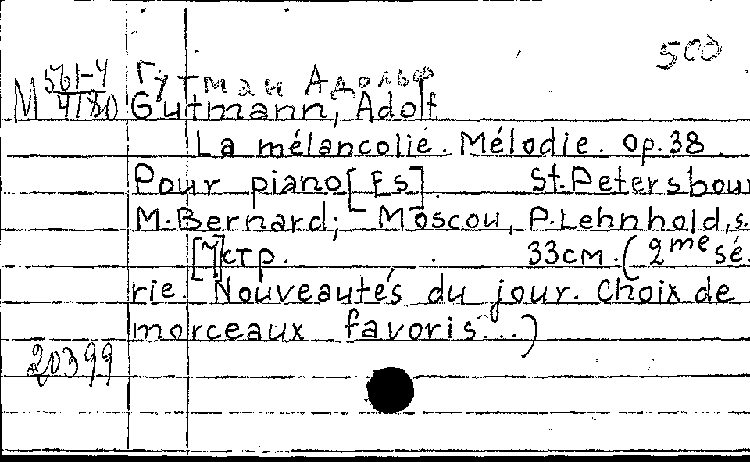 500
М 561-4 Гутман Адольф
4180 Gutmann, Adolf
La mélancolie. Mélodie. Op.38
Pour piano [Es]. St.Petersbour
M.Bernard; Moscou, P.Lehnhold, s.
[7] стр. 33см. (2me sé-
rie. Nouveautés du jour. Choix de
morceaux favoris...)
20399